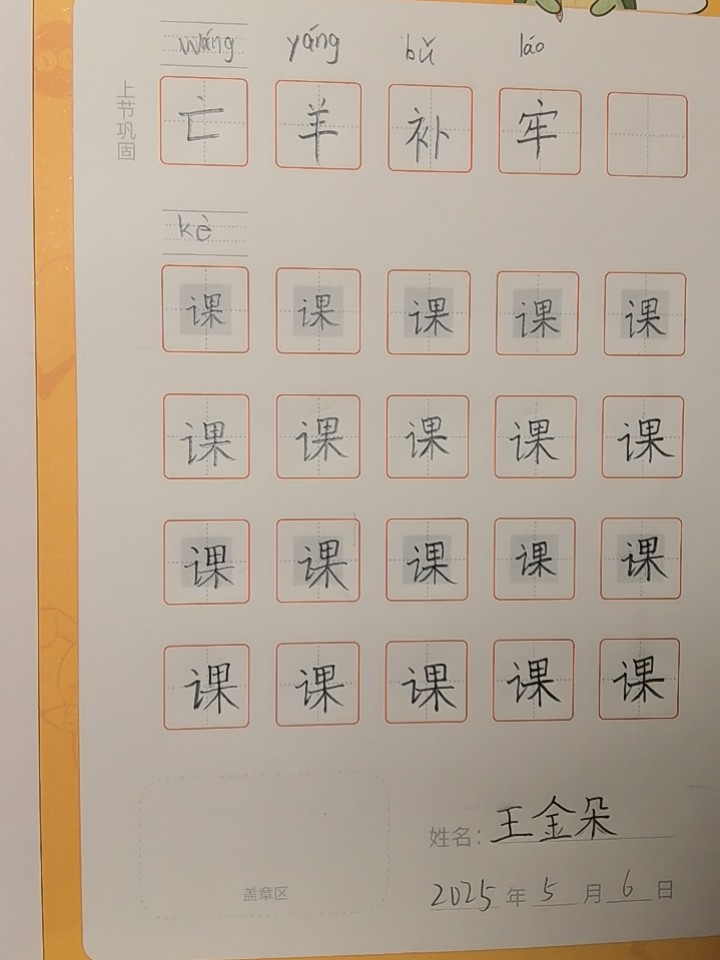 wáng yáng bǔ láo
上节巩固
亡 羊 补 牢
kè
课 课 课 课 课
课 课 课 课 课
课 课 课 课 课
课 课 课 课 课
姓名: 王金朵
盖章区
2025 年 5 月 6 日